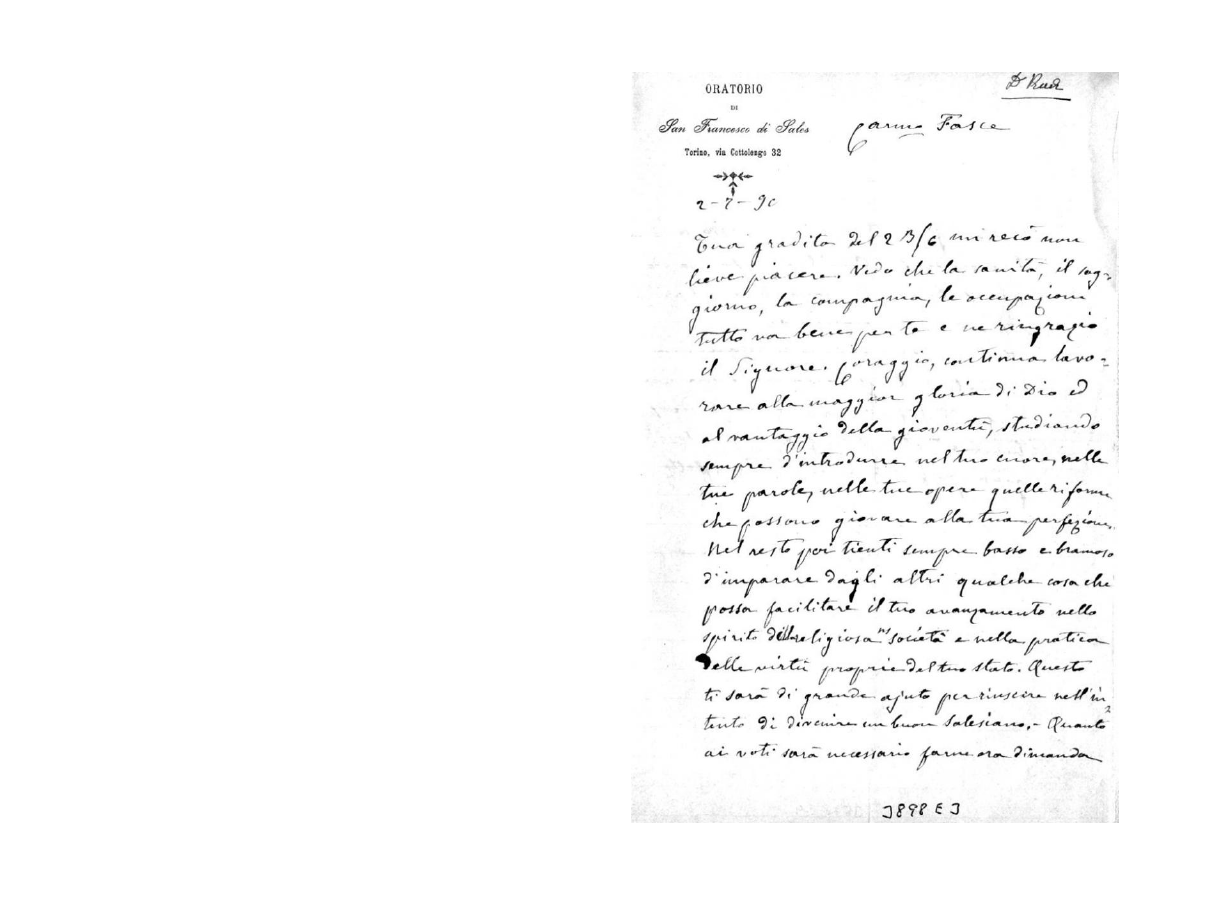 ORATORIO
DI
San Francesco di Sales
Torino, via Cottolengo 32
D Rua
Carmo Fasce
2-7-90
Tua gradita del 23/6 mi recò non
lieve piacere. Vedo che la sanità, il sog-
giorno, la compagnia, le occupazioni
tutto va bene per te e ne ringrazio
il Signore. Coraggio, continua lavo-
rare alla maggior gloria di Dio ed
al vantaggio della gioventù, studiando
sempre d'introdurre nel tuo cuore, nelle
tue parole, nelle tue opere quelle riforme
che possono giovare alla tua perfezione.
Nel resto poi tienti sempre basso e bramoso
d'imparare dagli altri qualche cosa che
possa facilitare il tuo avanzamento nello
spirito della religiosa ns società e nella pratica
delle virtù proprie del tuo stato. Questo
ti sarà di grande ajuto per riuscire nell'in
tento di divenire un buon Salesiano.- Quanto
ai voti sarà necessario farne ora dimanda
3898 E 3